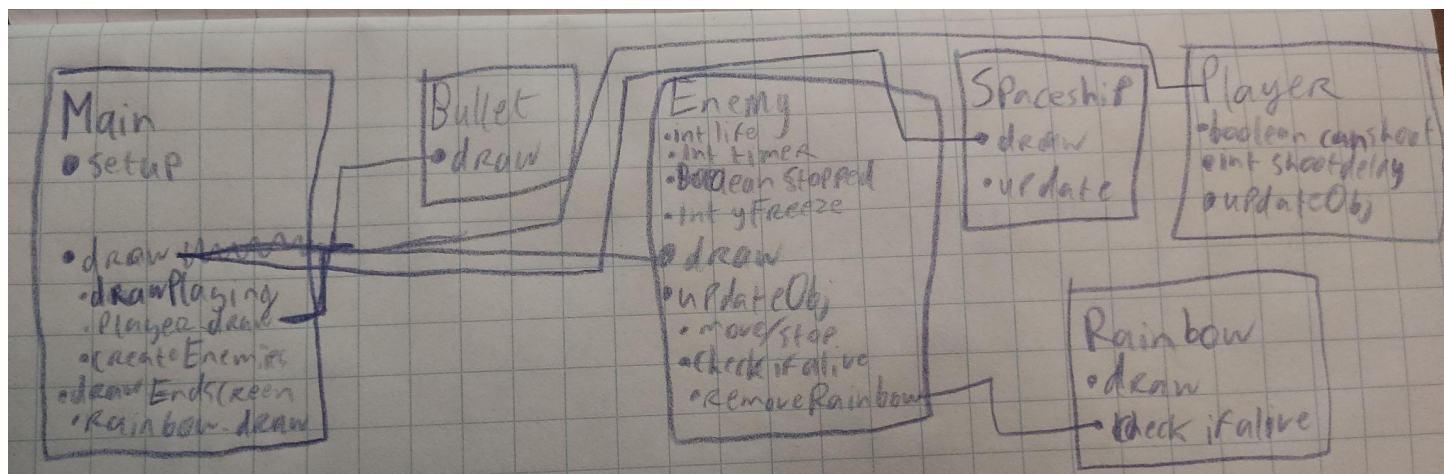 Main
• setup
• draw
• drawPlaying
• Player draw
• createEnemies
• drawEndscreen
• Rainbow.draw
Bullet
• draw
Enemy
• int life
• int timer
• Boolean stopped
• int yFreeze
• draw
• updateObj
• move/stop
• check if alive
• RemoveRainbow
Spaceship
• draw
• update
Player
• boolean canshoot
• int shootdelay
• updateObj
Rainbow
• draw
• check if alive